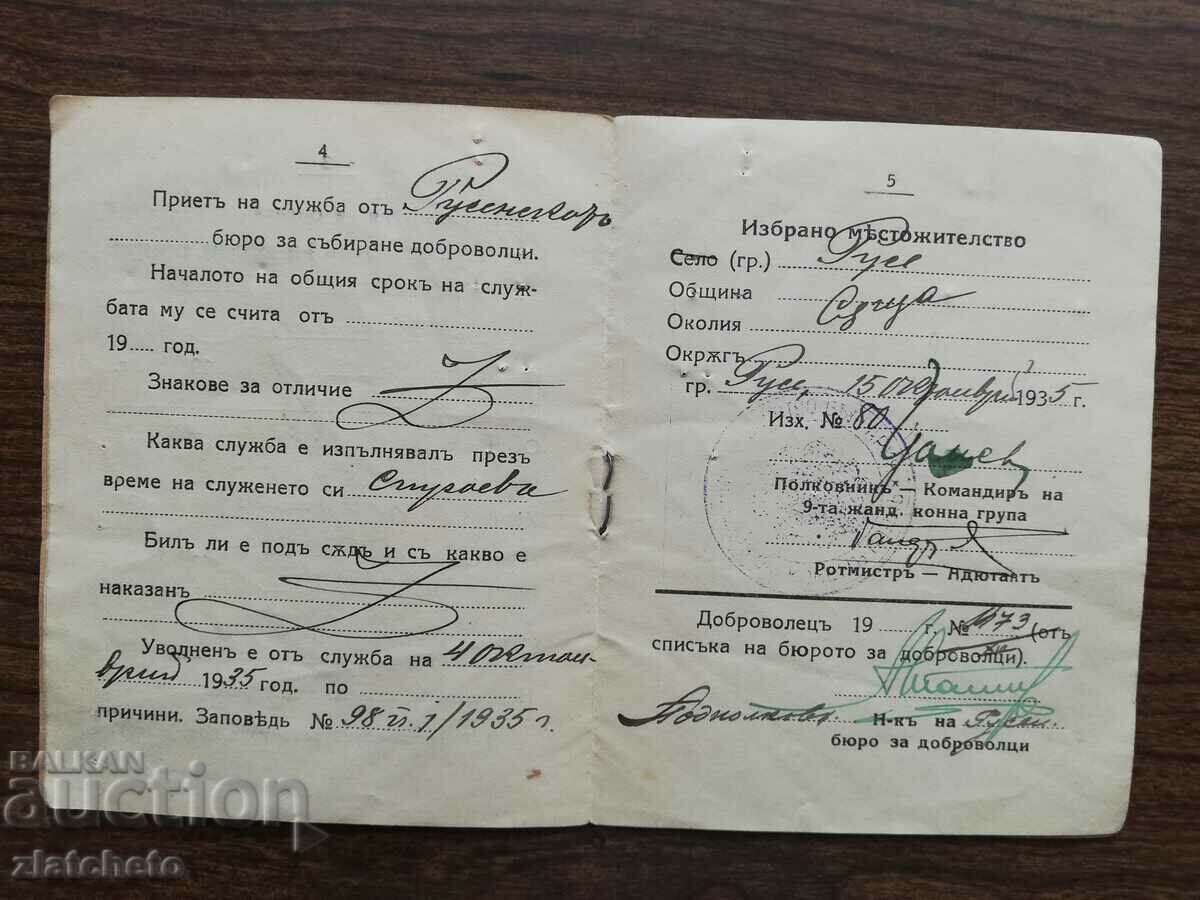 4
Приетъ на служба отъ Русенското
бюро за събиране доброволци.
Началото на общия срокъ на служ-
бата му се счита отъ
19 год.
Знакове за отличие
Каква служба е изпълнявалъ презъ
време на служенето си строева
Билъ ли е подъ сѫдъ и съ какво е
наказанъ
Уволненъ е отъ служба на 4 октом-
врий 1935 год. по
причини. Заповѣдь № 98 /1935 г
5
Избрано мѣстожителство
Село (гр.) Русе
Община Същата
Околия
Окрѫгъ
гр. Русе, 15 октомврий 1935 г.
Изх. № 80
Полковникъ — Командиръ на
9-та жанд. конна група
Ротмистръ — Адютантъ
Доброволецъ 19 г. № 1173 (отъ
списъка на бюрото за доброволци).
Подполковн. Н-къ на Русен.
бюро за доброволци
BALKAN
auction
zlatcheto